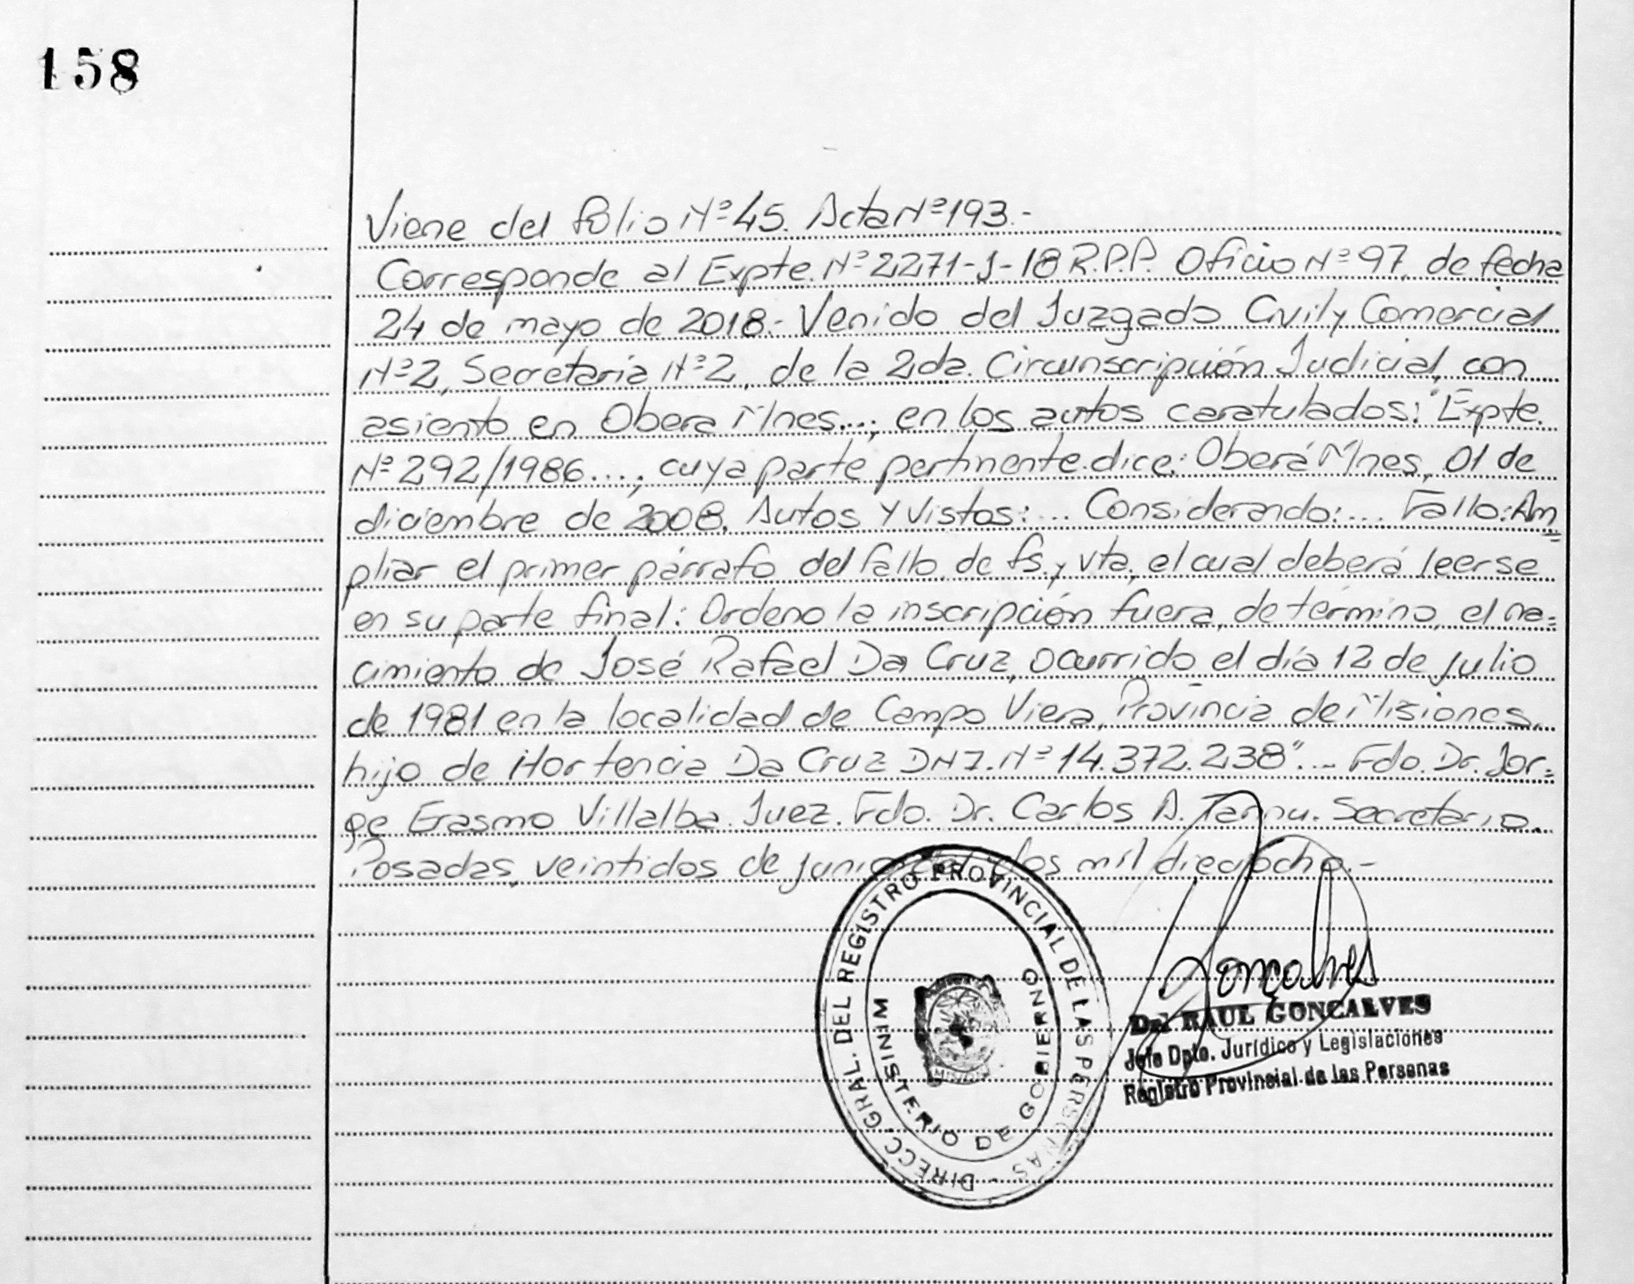 158
Viene del folio Nº 45. Acta Nº 193.-
Corresponde al Expte. Nº 2271-J-18 R.P.P. Oficio Nº 97, de fecha
24 de mayo de 2018.- Venido del Juzgado Civil y Comercial
Nº 2, Secretaria Nº 2, de la 2da. Circunscripción Judicial, con
asiento en Obera Mnes...; en los autos caratulados: "Expte.
Nº 292/1986..., cuya parte pertinente dice: Oberá Mnes, 01 de
diciembre de 2008. Autos y Vistos:... Considerando:... Fallo: Am=
pliar el primer párrafo del fallo de fs. y vta, el cual deberá leerse
en su parte final: Ordeno la inscripción fuera de término el na=
cimiento de José Rafael Da Cruz, ocurrido el día 12 de julio
de 1981 en la localidad de Campo Viera, Provincia de Misiones,
hijo de Hortencia Da Cruz DNI. Nº 14.372.238".- Fdo. Dr. Jor=
ge Erasmo Villalba. Juez. Fdo. Dr. Carlos A. Secretario.
Posadas, veintidos de junio del dos mil dieciocho.-
DIRECC. GRAL. DEL REGISTRO PROVINCIAL DE LAS PERSONAS
MINISTERIO DE GOBIERNO
MISIONES
Gonçalves
Dr. RAUL GONCALVES
Jefe Dpto. Jurídico y Legislaciones
Registro Provincial de las Personas